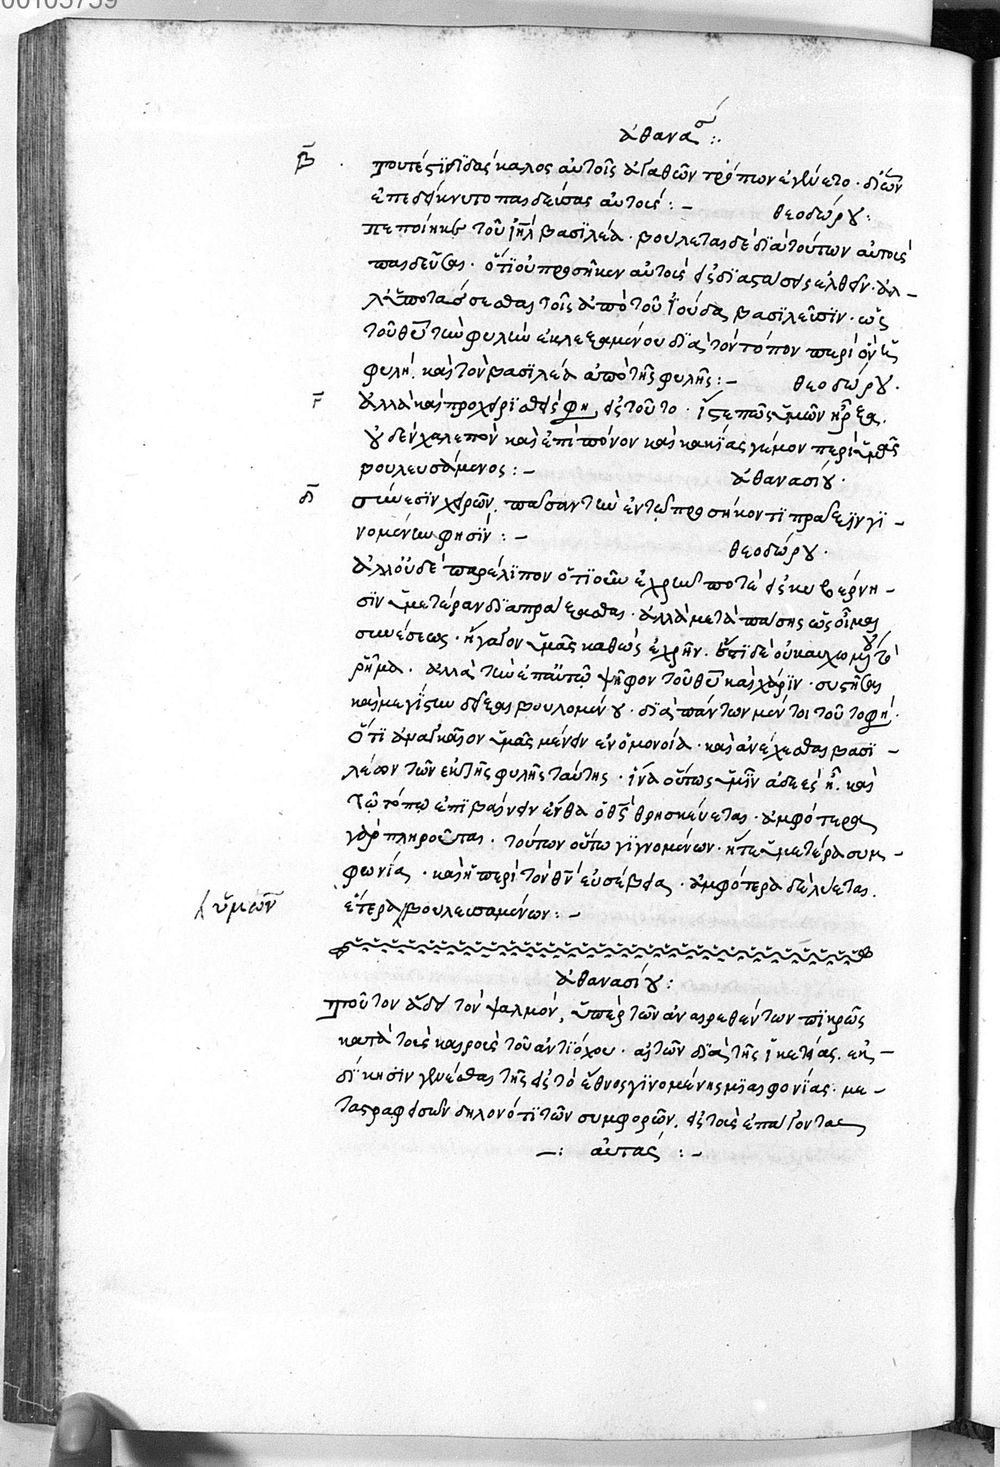 00105759
ἀθανασ :.
β τουτέστι διδάσκαλος αὐτοῖς ἀγαθῶν τρόπων ἐγένετο · δι' ὧν
ἐπεδείκνυτο παιδεύσας αὐτούς : – θεοδώρου :
πεποίηκε τοῦ ιηλ βασιλέα · βούλεται δὲ διὰ τούτων αὐτοὺς
παιδεῦσαι · ὅτι οὐ προσῆκεν αὐτοὺς εἰς διάστασιν ἐλθεῖν · ἀλ –
λ' ὑποτάσσεσθαι τοῖς ἀπὸ τοῦ ἰούδα βασιλεῦσιν · ὡς
τοῦ θυ τὴν φυλὴν ἐκλεξαμένου διὰ τὸν τόπον περὶ ὃν ἡ
φυλή. καὶ τὸν βασιλέα ἀπὸ τῆς φυλῆς : – θεοδώρου ·
γ ἀλλὰ καὶ προχειρισθεὶς φη εἰς τοῦτο · ἴστε πῶς ὑμῶν ἦρξα.
οὐδὲν χαλεπὸν καὶ ἐπίπονον καὶ κακίας γέμον περὶ ὑμᾶς
βουλευσάμενος : – ἀθανασίου ·
δ σύνεσιν χειρῶν. πᾶσαν τὴν ἐν τῷ προσήκοντι πράξειν γι –
νομένην φησίν : – θεοδώρου ·
ἀλλ' οὐδὲ παρέλιπον ὅτι οὖν ἐχρῆν ποτὲ εἰς κυβέρνη –
σιν ὑμετέραν διαπράξασθαι · ἀλλὰ μετὰ πάσης ὡς οἶμαι
συνέσεως · ἤγαγον ὑμᾶς καθὼς ἐχρῆν. ἔστι δὲ οὐ καυχωμένου τὸ
ῥῆμα · ἀλλὰ τὴν ἐπ' αὐτῷ ψῆφον τοῦ θυ καὶ χάριν · συστῆσαι
καὶ μεγίστην δεῖξαι βουλομένου · διὰ πάντων μέντοι τοῦτό φη ·
ὅτι ἀναγκαῖον ὑμᾶς μένειν ἐν ὁμονοίᾳ · καὶ ἀνέχεσθαι βασι –
λέων τῶν ἐκ τῆς φυλῆς ταύτης · ἵνα οὕτως ὑμῖν ἀδεὲς ᾖ. καὶ
τῷ τόπῳ ἐπιβαίνειν ἔνθα ὁ θς θρησκεύεται · ἀμφότερα
γὰρ πληροῦται · τούτων οὕτω γιγνομένων · ἥτε ὑμετέρα συμ –
φωνία · καὶ ἡ περὶ τὸν θν εὐσέβεια · ἀμφότερα δὲ λύεται.
ἕτερα βουλευσαμένων : –
ὑμῶν
ἀθανασίου :
τοῦτον ᾄδει τὸν ψαλμόν, ὑπὲρ τῶν ἀναιρεθέντων πικρῶς
κατὰ τοὺς καιροὺς τοῦ ἀντιόχου · αἰτῶν διὰ τῆς ἱκετίας. ἐκ –
δίκησιν γενέσθαι τῆς εἰς τὸ ἔθνος γινομένης μιαιφονίας · με –
ταγραφεισῶν δηλονότι τῶν συμφορῶν. εἰς τοὺς ἐπάγοντας
– : αὐτάς : –